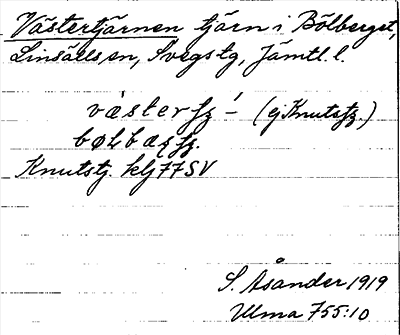 Västertjärnen tjärn i Bölberget,
Linsälls sn, Svegs tg, Jämtl. l.
västerʃʒ - (ej Knutsʃʒ.)
bøLbæʃʒ.
Knutstj. klj 77 SV
S. Åsander 1919
Ulma 755:10